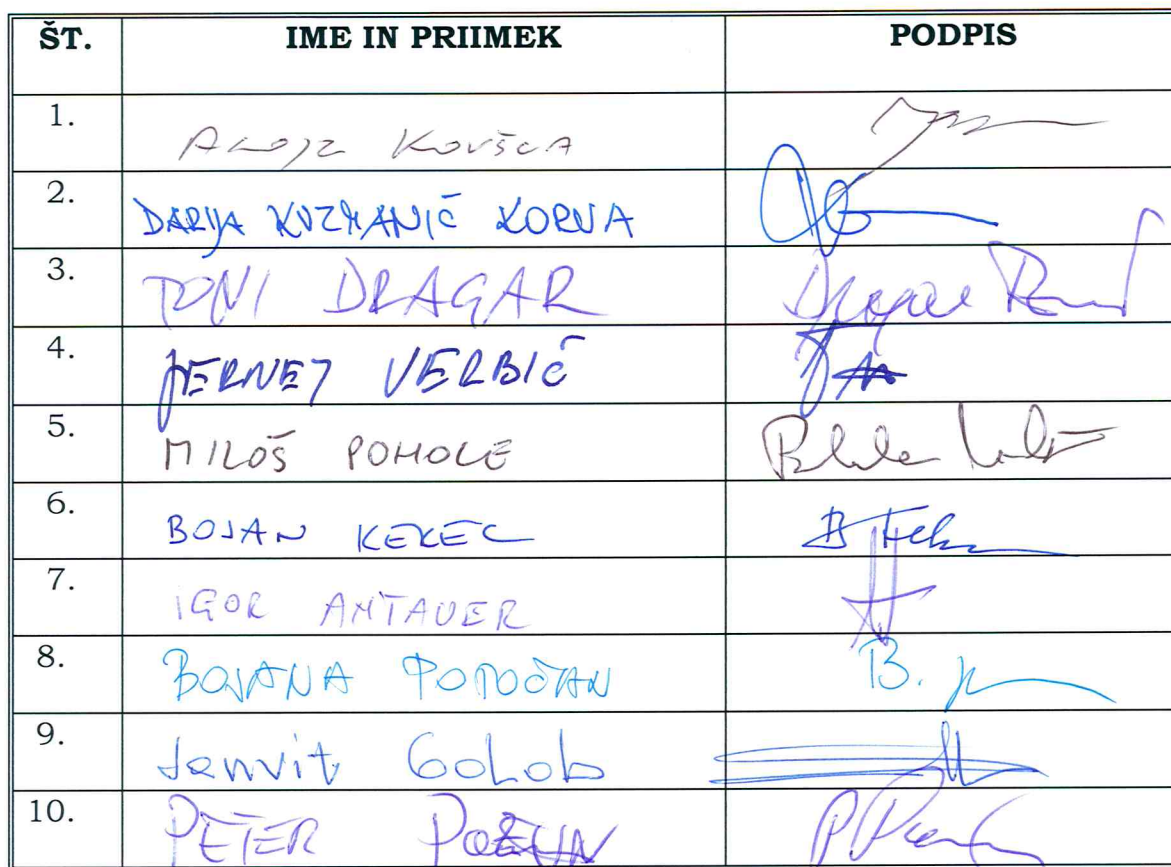 ŠT. IME IN PRIIMEK PODPIS
1. ALOJZ KOVŠCA
2. DARIJA KUZMANIČ KORVA
3. TONI DRAGAR Dragar Toni
4. JERNEJ VERBIČ
5. MILOŠ POHOLE
6. BOJAN KEKEC
7. IGOR ANTAUER
8. BOJANA POTOČAN B.
9. Janvit Golob
10. PETER POŽUN